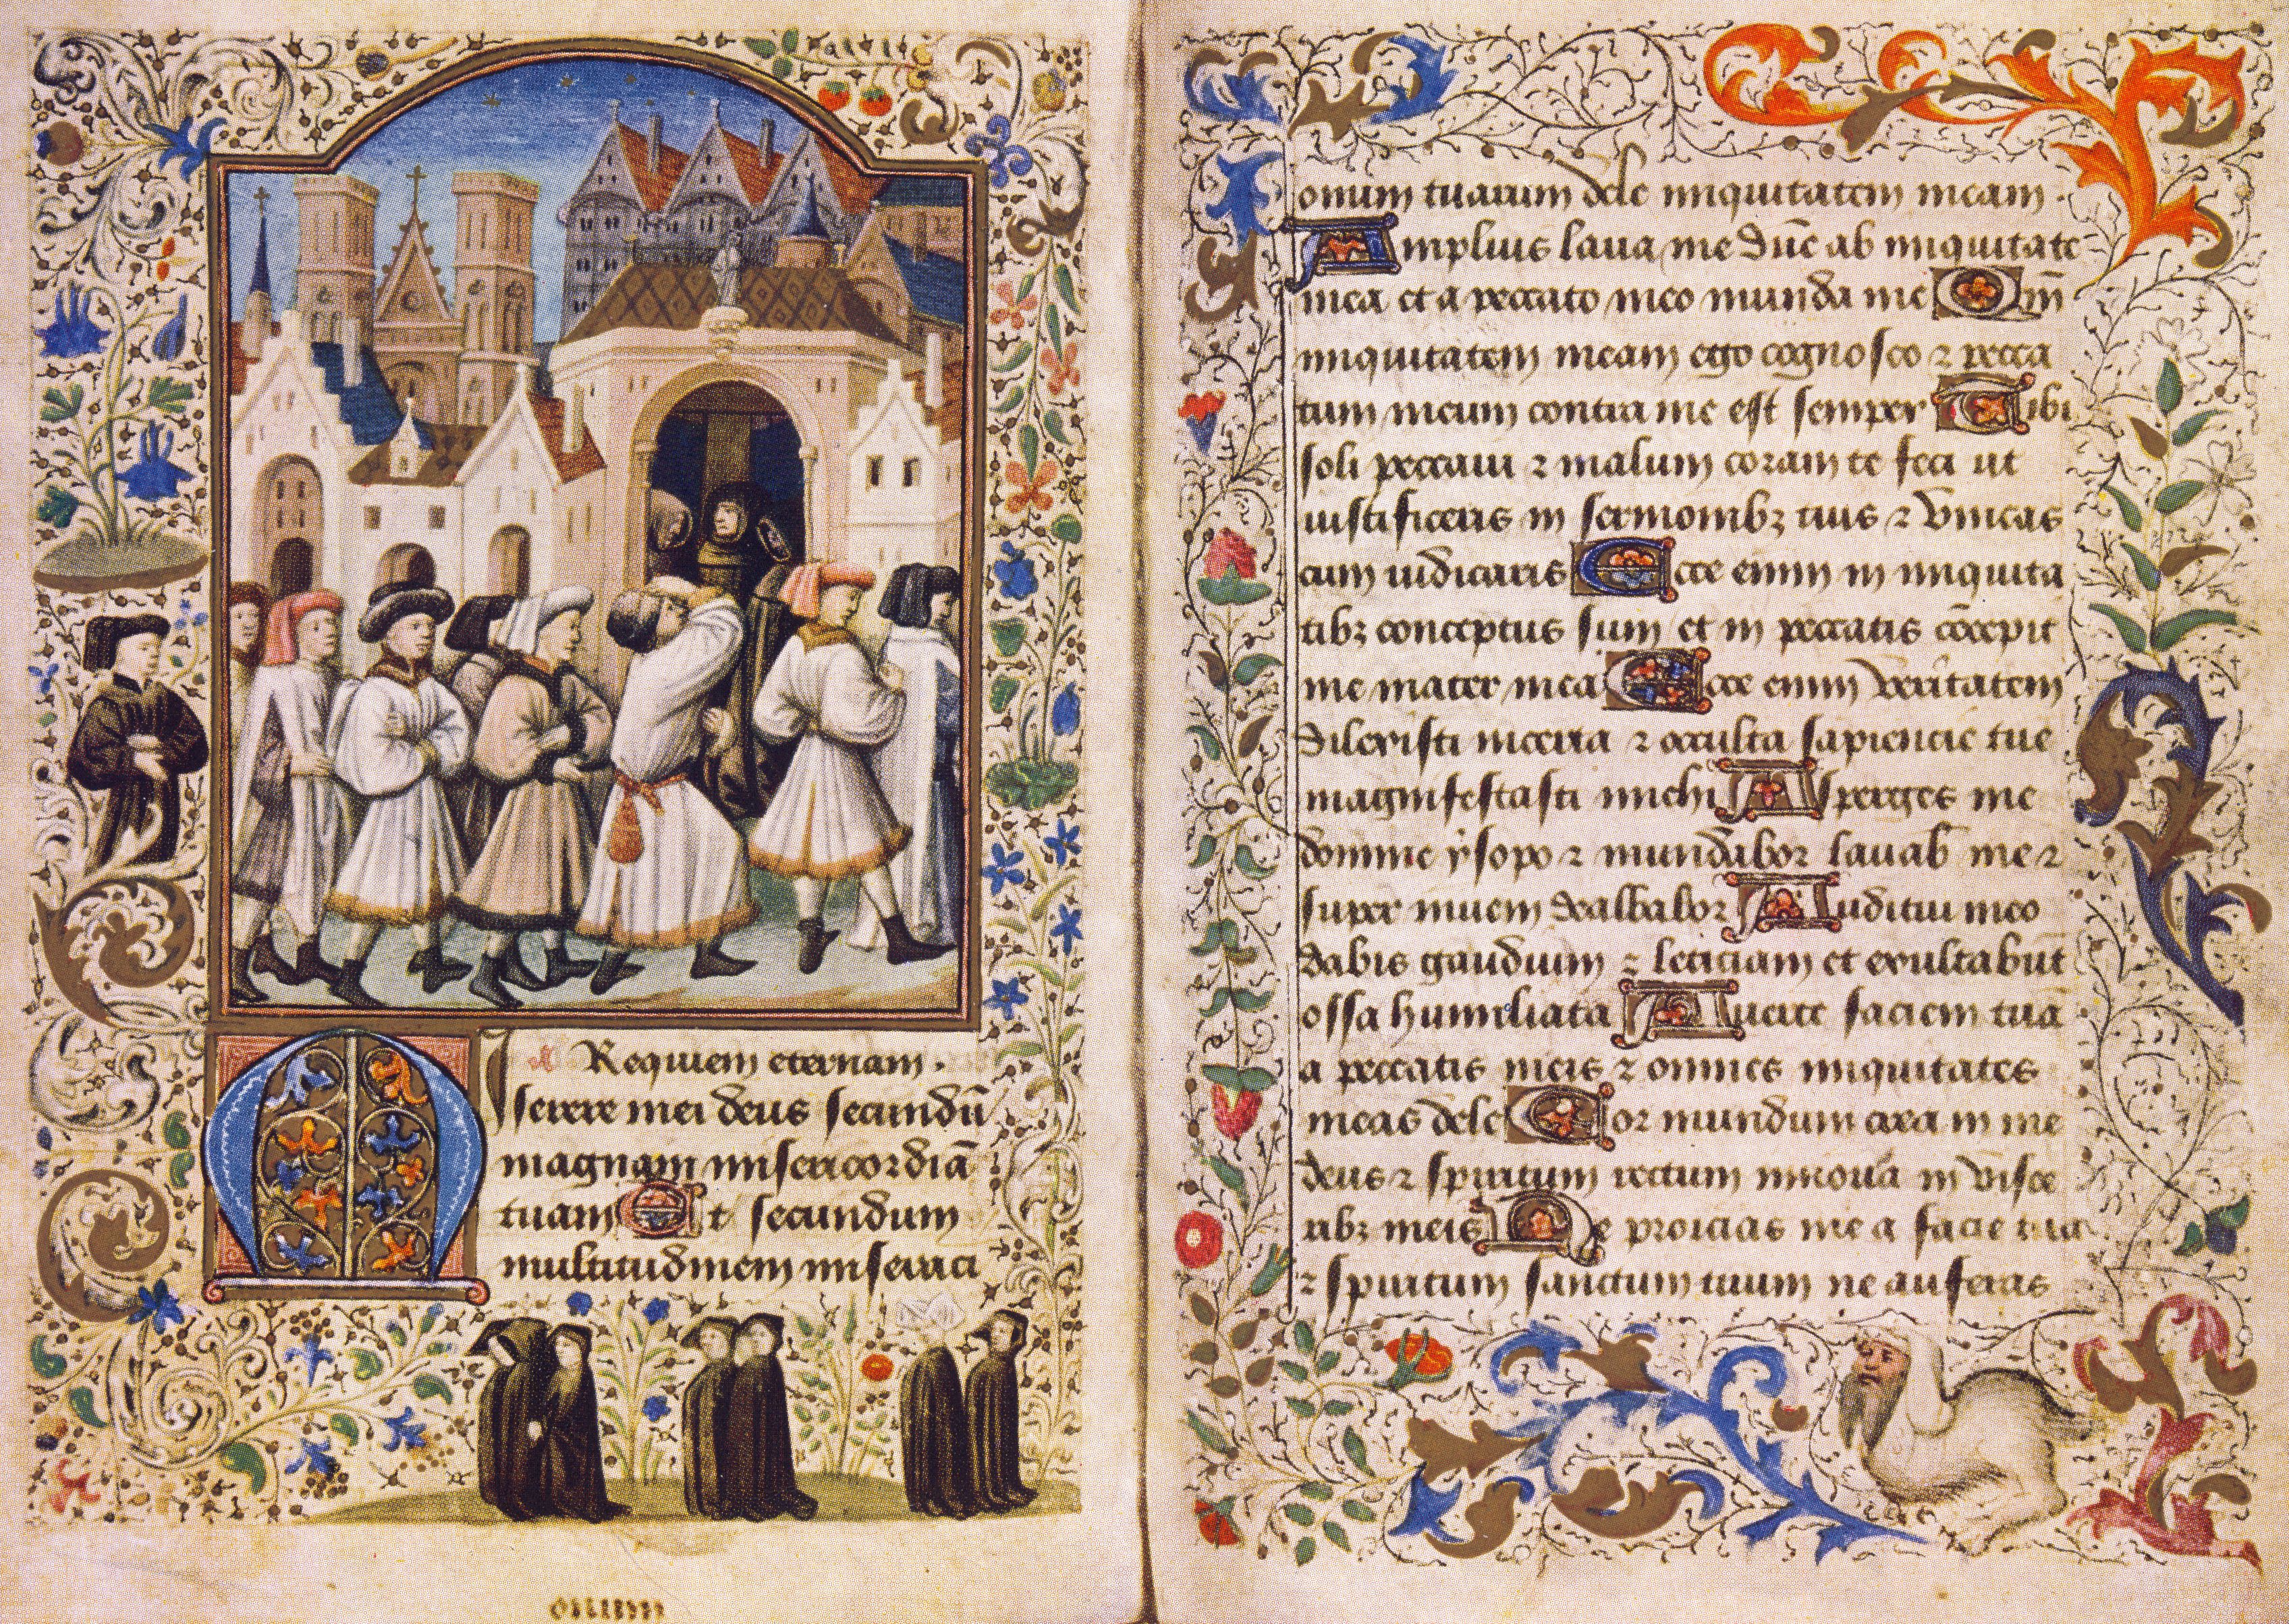 Requiem eternam.
Miserere mei deus secundū
magnam misericordiā
tuam Et secundum
multitudinem miseraci
onum
onum tuarum dele iniquitatem meam.
Amplius laua me dn̄e ab iniquitate
mea et a peccato meo munda me Qm̄
iniquitatem meam ego cognosco ⁊ pecca
tum meum contra me est semper Tibi
soli peccaui ⁊ malum coram te feci ut
iustificeris in sermonibꝫ tuis ⁊ vincas
cum iudicaris Ecce enim in iniquita
tibꝫ conceptus sum et in peccatis cōcepit
me mater mea Ecce enim veritatem
dilexisti incerta ⁊ occulta sapiencie tue
magnifestasti michi Asperges me
domine ysopo ⁊ mundabor lauab me ⁊
super niuem dealbabor Auditui meo
dabis gaudium ⁊ leticiam et exultabūt
ossa humiliata Auerte faciem tua
a peccatis meis ⁊ omnes iniquitates
meas dele Cor mundum crea in me
deus ⁊ spiritum rectum innoua in visce
ribꝫ meis Ne proicias me a facie tua
⁊ spiritum sanctum tuum ne auferas